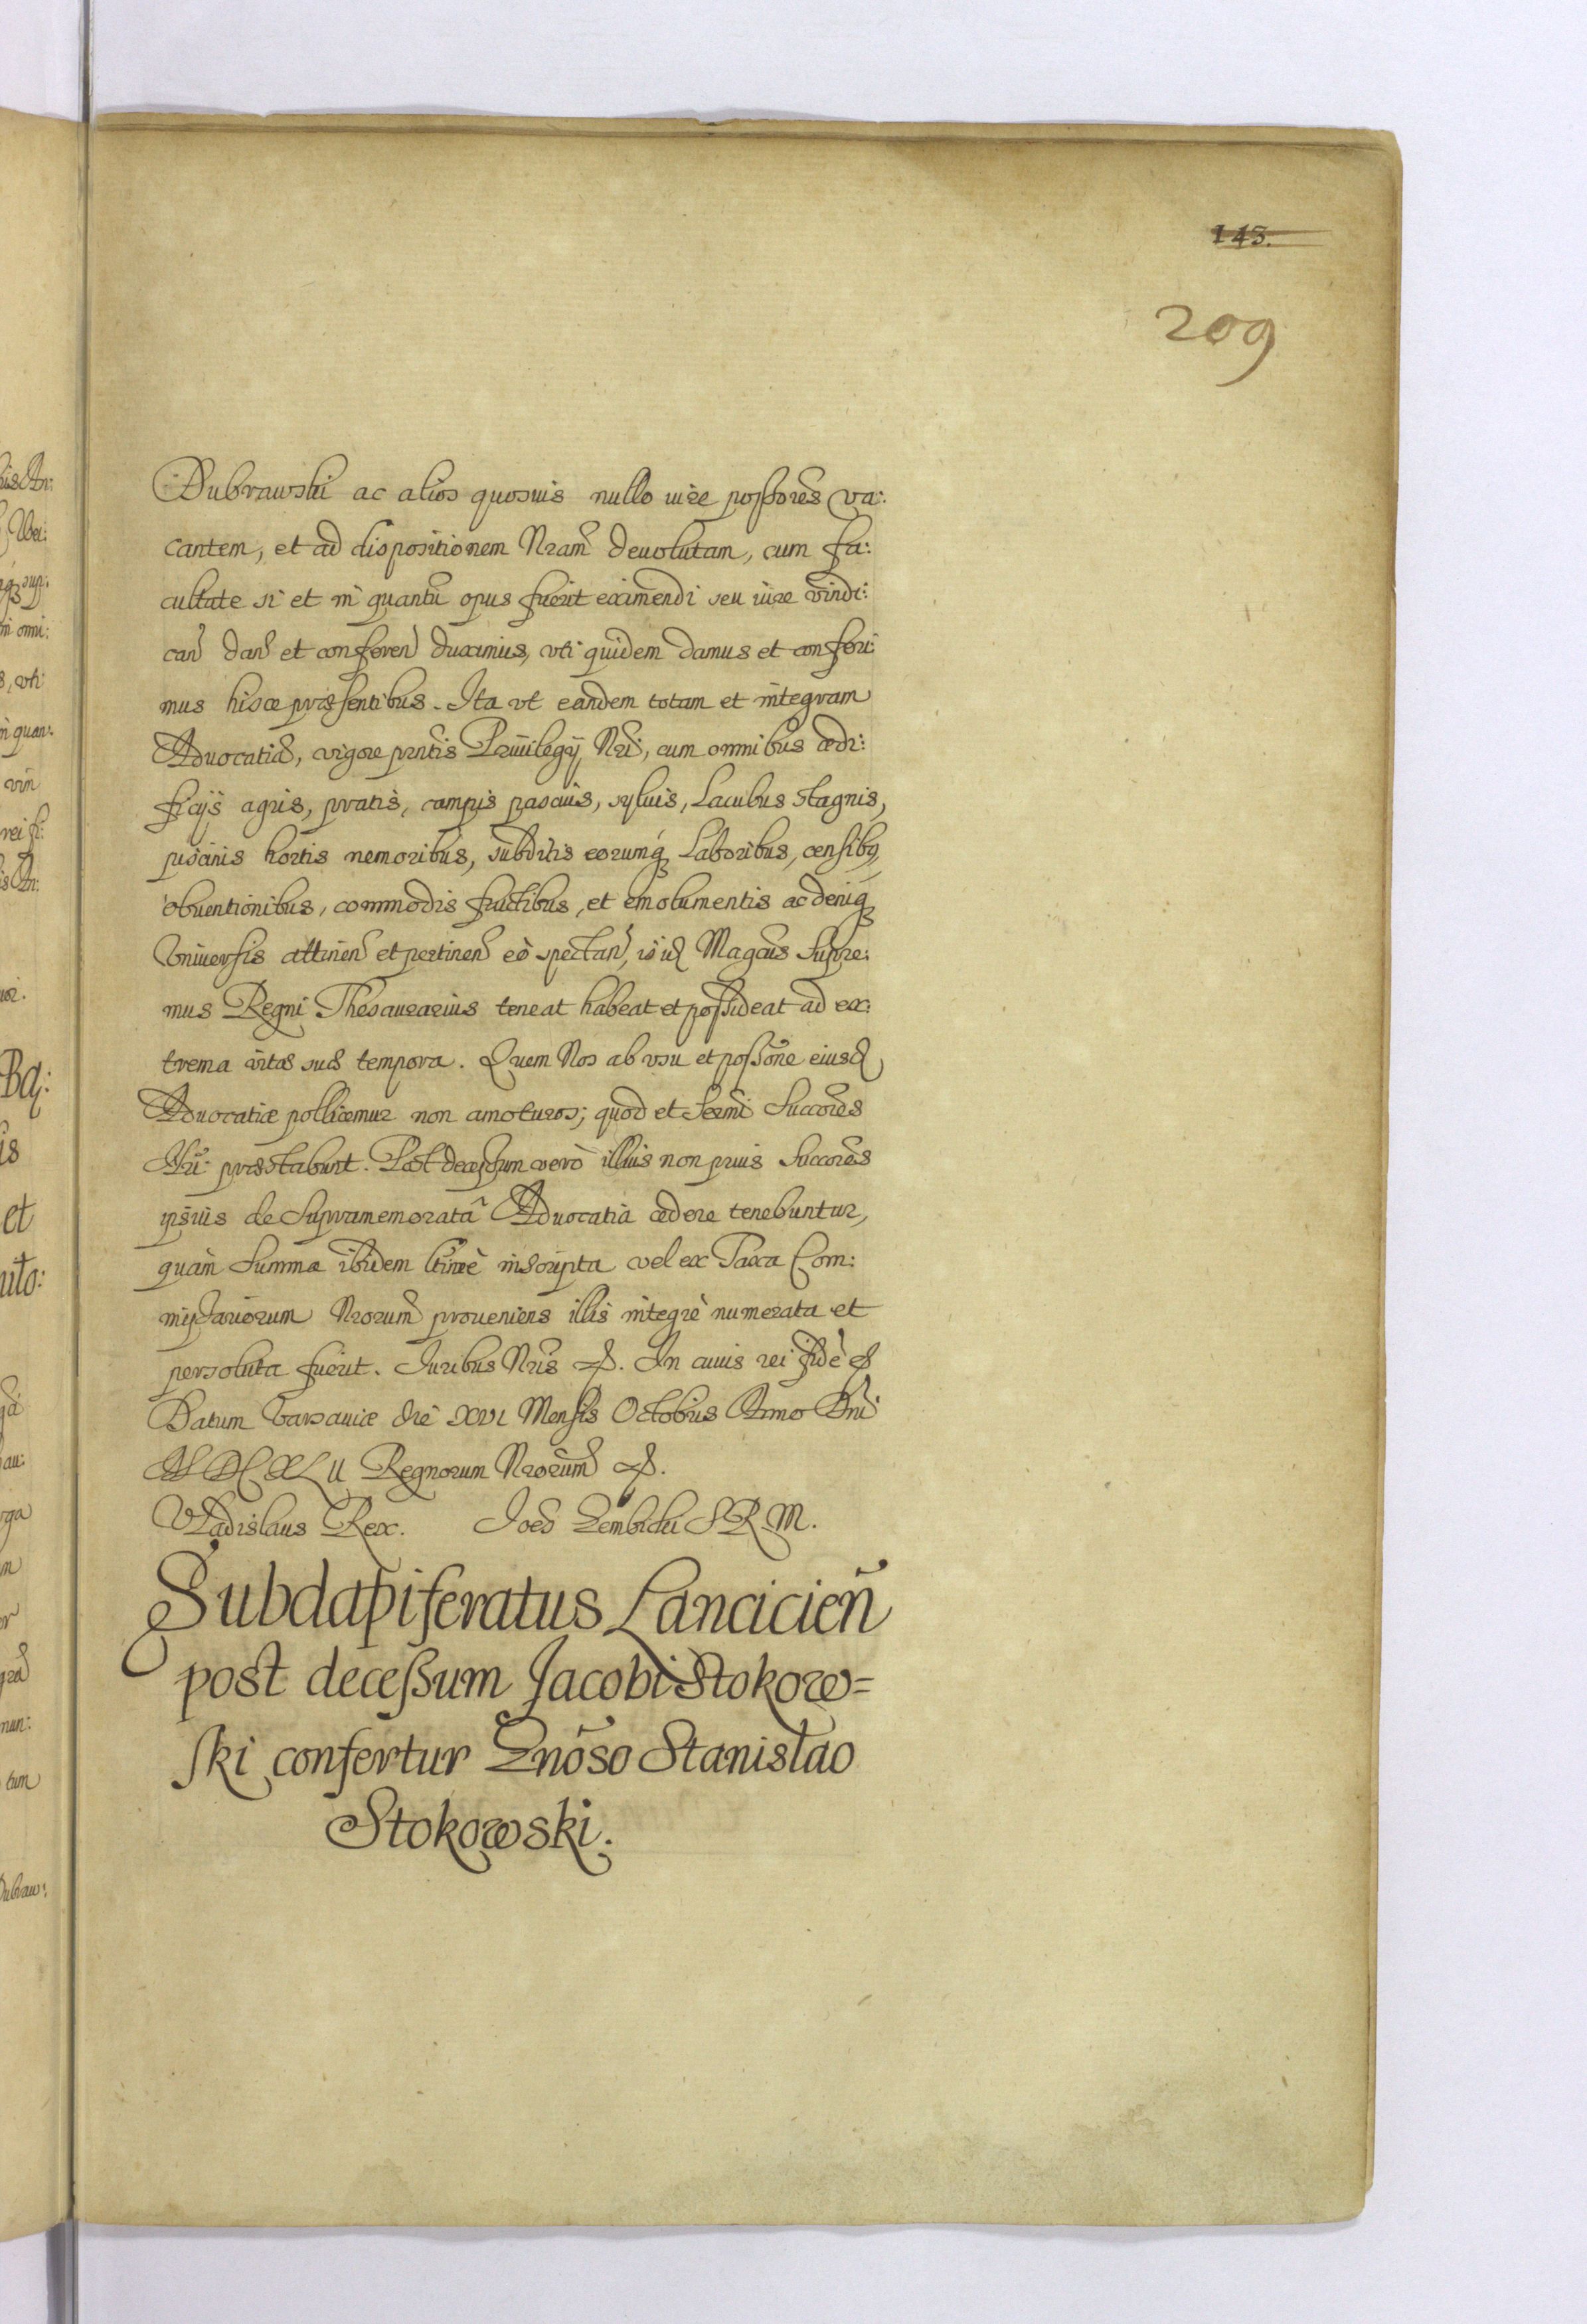 143.
209
Dubrawski ac alios quosuis nullo iure possores va:
cantem, et ad dispositionem Nram deuolutam, cum fa:
cultate si et in quantũ opus fuerit eximendi seu iure vindi:
can dan et conferen duximus, vti quidem damus et conferi:
mus hisce præsentibus. Ita vt eandem totam et integram
Aduocatiã, vigore prntis Priuilegij Nri, cum omnibus ædi:
ficijs agris, pratis, campis pascuis, syluis, Lacubus stagnis,
piscinis hortis nemoribus, subditis eorumq́ Laboribus, censibq,
obuentionibus, commodis fructibus, et emolumentis ac deniq
Vniuersis attinen et pertinen eò spectan, is id Magcus Supre:
mus Regni Thesaurarius teneat habeat et possideat ad ex:
trema vitæ suæ tempora. Quem Nos ab vsu et possõne eiusd
Aduocatiæ pollicemur non amoturos; quod et Sermi Succores
Nri præstabunt. Post decessum verò illius non prius Succores
ipsius de Supramemoratâ Aduocatia cedere tenebuntur,
quàm Summa ibidem ltimè inscripta vel ex Taxa Com:
missariorum Nrorum proueniens illis integrè numerata et
persoluta fuerit. Iuribus Nris &. In cuius rei fidẽ &
Datum Varsauiæ die XVI Mensis Octobris Anno Dni
MDCXLII Regnorum Nrorum &.
Vladislaus Rex. Ioes Gembicki SRM.
Subdapiferatus Lancicien̄
post decessum Jacobi Stokow=
ski confertur Gnõso Stanislao
Stokowski.